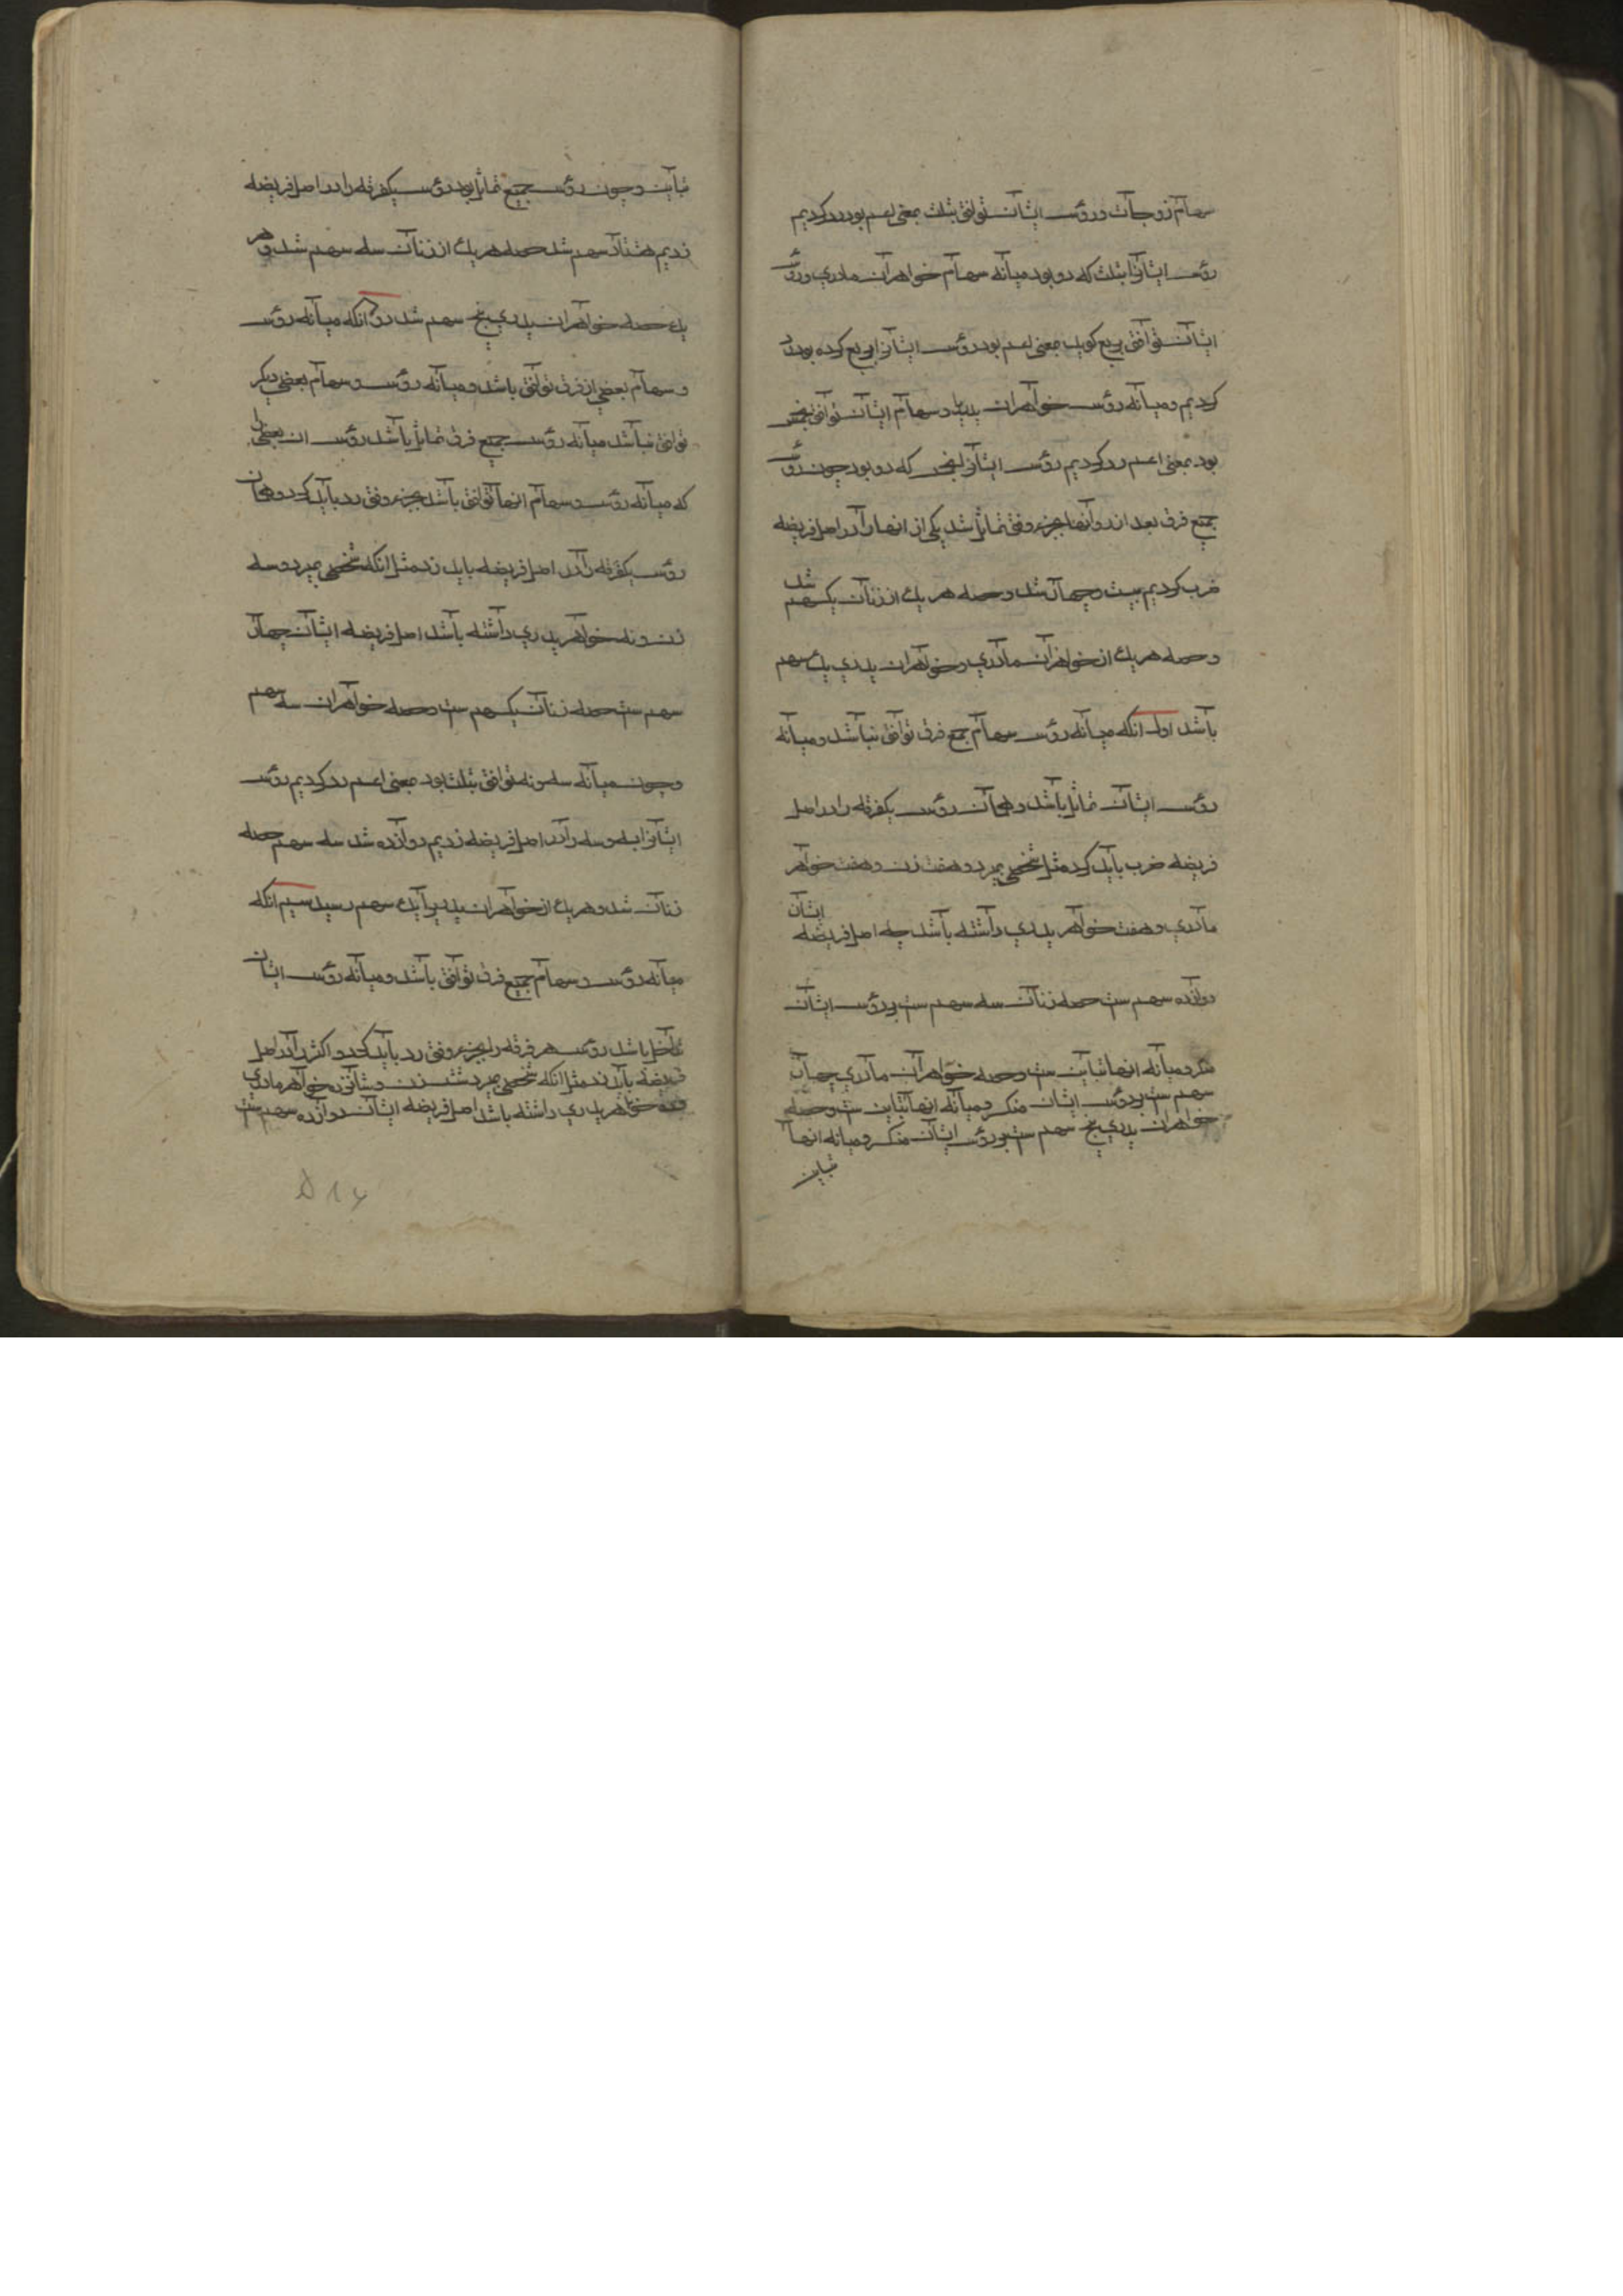 سهام زوجات و رؤس ایشان توافق بثلث بمعنی اعم بود رد کردیم
رؤس ایشانرا بثلث که دو بود میانه سهام خواهران مادری و رؤس
ایشان توافق بربع کوید بمعنی اعم بود رؤس ایشانرا بربع کرده بود رد
کردیم و میانه رؤس خواهران پدری و سهام ایشان توافق بخمس
بود بمعنی اعم رد کردیم رؤس ایشانرا بخمس که دو بود چون رؤس
جمیع فرق بعد از رد آنها بجزء وفق تماثل شد یکی از انها را در اصل فریضه
ضرب کردیم بیست و چهار شد و حصه هر یک از زنان یکسهم شد
و حصه هر یک از خواهران مادری و خواهران پدری یک سهم
باشد اول انکه میانه رؤس سهام جمع فرق توافق نباشد و میانه
رؤس ایشان تماثل باشد و همان رؤس یکفرقه را در اصل
فریضه ضرب باید کرد مثل شخصی بمیرد و هفت زن و هفت خواهر
مادری و هفت خواهر پدری داشته باشد چه اصل فریضه ایشان
دوازده سهم ست حصه زنان سه سهم ست بر رؤس ایشان
منکر و میانه انها تباین ست و حصه خواهران مادری چهار
سهم ست بر رؤس ایشان منکر و میانه انها تباین ست و حصه
خواهران پدری پنج سهم ست بر رؤس ایشان منکر و میانه انها
تباین
تباین و چون رؤس جمیع تماثل بود رؤس یکفرقه را در اصل فریضه
زدیم هشتاد سهم شد حصه هر یک از زنان سه سهم شد و هر
یک حصه خواهران پدری پنج سهم شد دو انکه میانه رؤس
و سهام بعضی از فرق توافق باشد و میانه رؤس و سهام بعضی دیکر
توافق نباشد میانه رؤس جمیع فرق تماثل باشد رؤس ان بعضی را
که میانه رؤس و سهام انها توافق باشد بجزء وفق رد باید کرد و همان
رؤس یکفرقه را در اصل فریضه باید زد مثل انکه شخصی بمیرد و سه
زن و نه خواهر پدری داشته باشد اصل فریضه ایشان چهار
سهم ست حصه زنان یکسهم ست و حصه خواهران سه سهم
و چون میانه سه و نه توافق بثلث بود بمعنی اعم رد کردیم رؤس
ایشانرا بسه و سه را در اصل فریضه زدیم دوازده شد سه سهم حصه
زنان شد و هر یک از خواهران پدیرا یک سهم رسید سیم انکه
میانه رؤس و سهام جمیع فرق توافق باشد و میانه رؤس ایشان
تداخل باشد رؤس هر فرقه را بجزء وفق رد باید کرد و اکثر را در اصل
فریضه باید زد مثل انکه شخصی بمیرد شش زن و شانزده خواهر مادری
و ده خواهر پدری داشته باشد اصل فریضه ایشان دوازده سهم ست